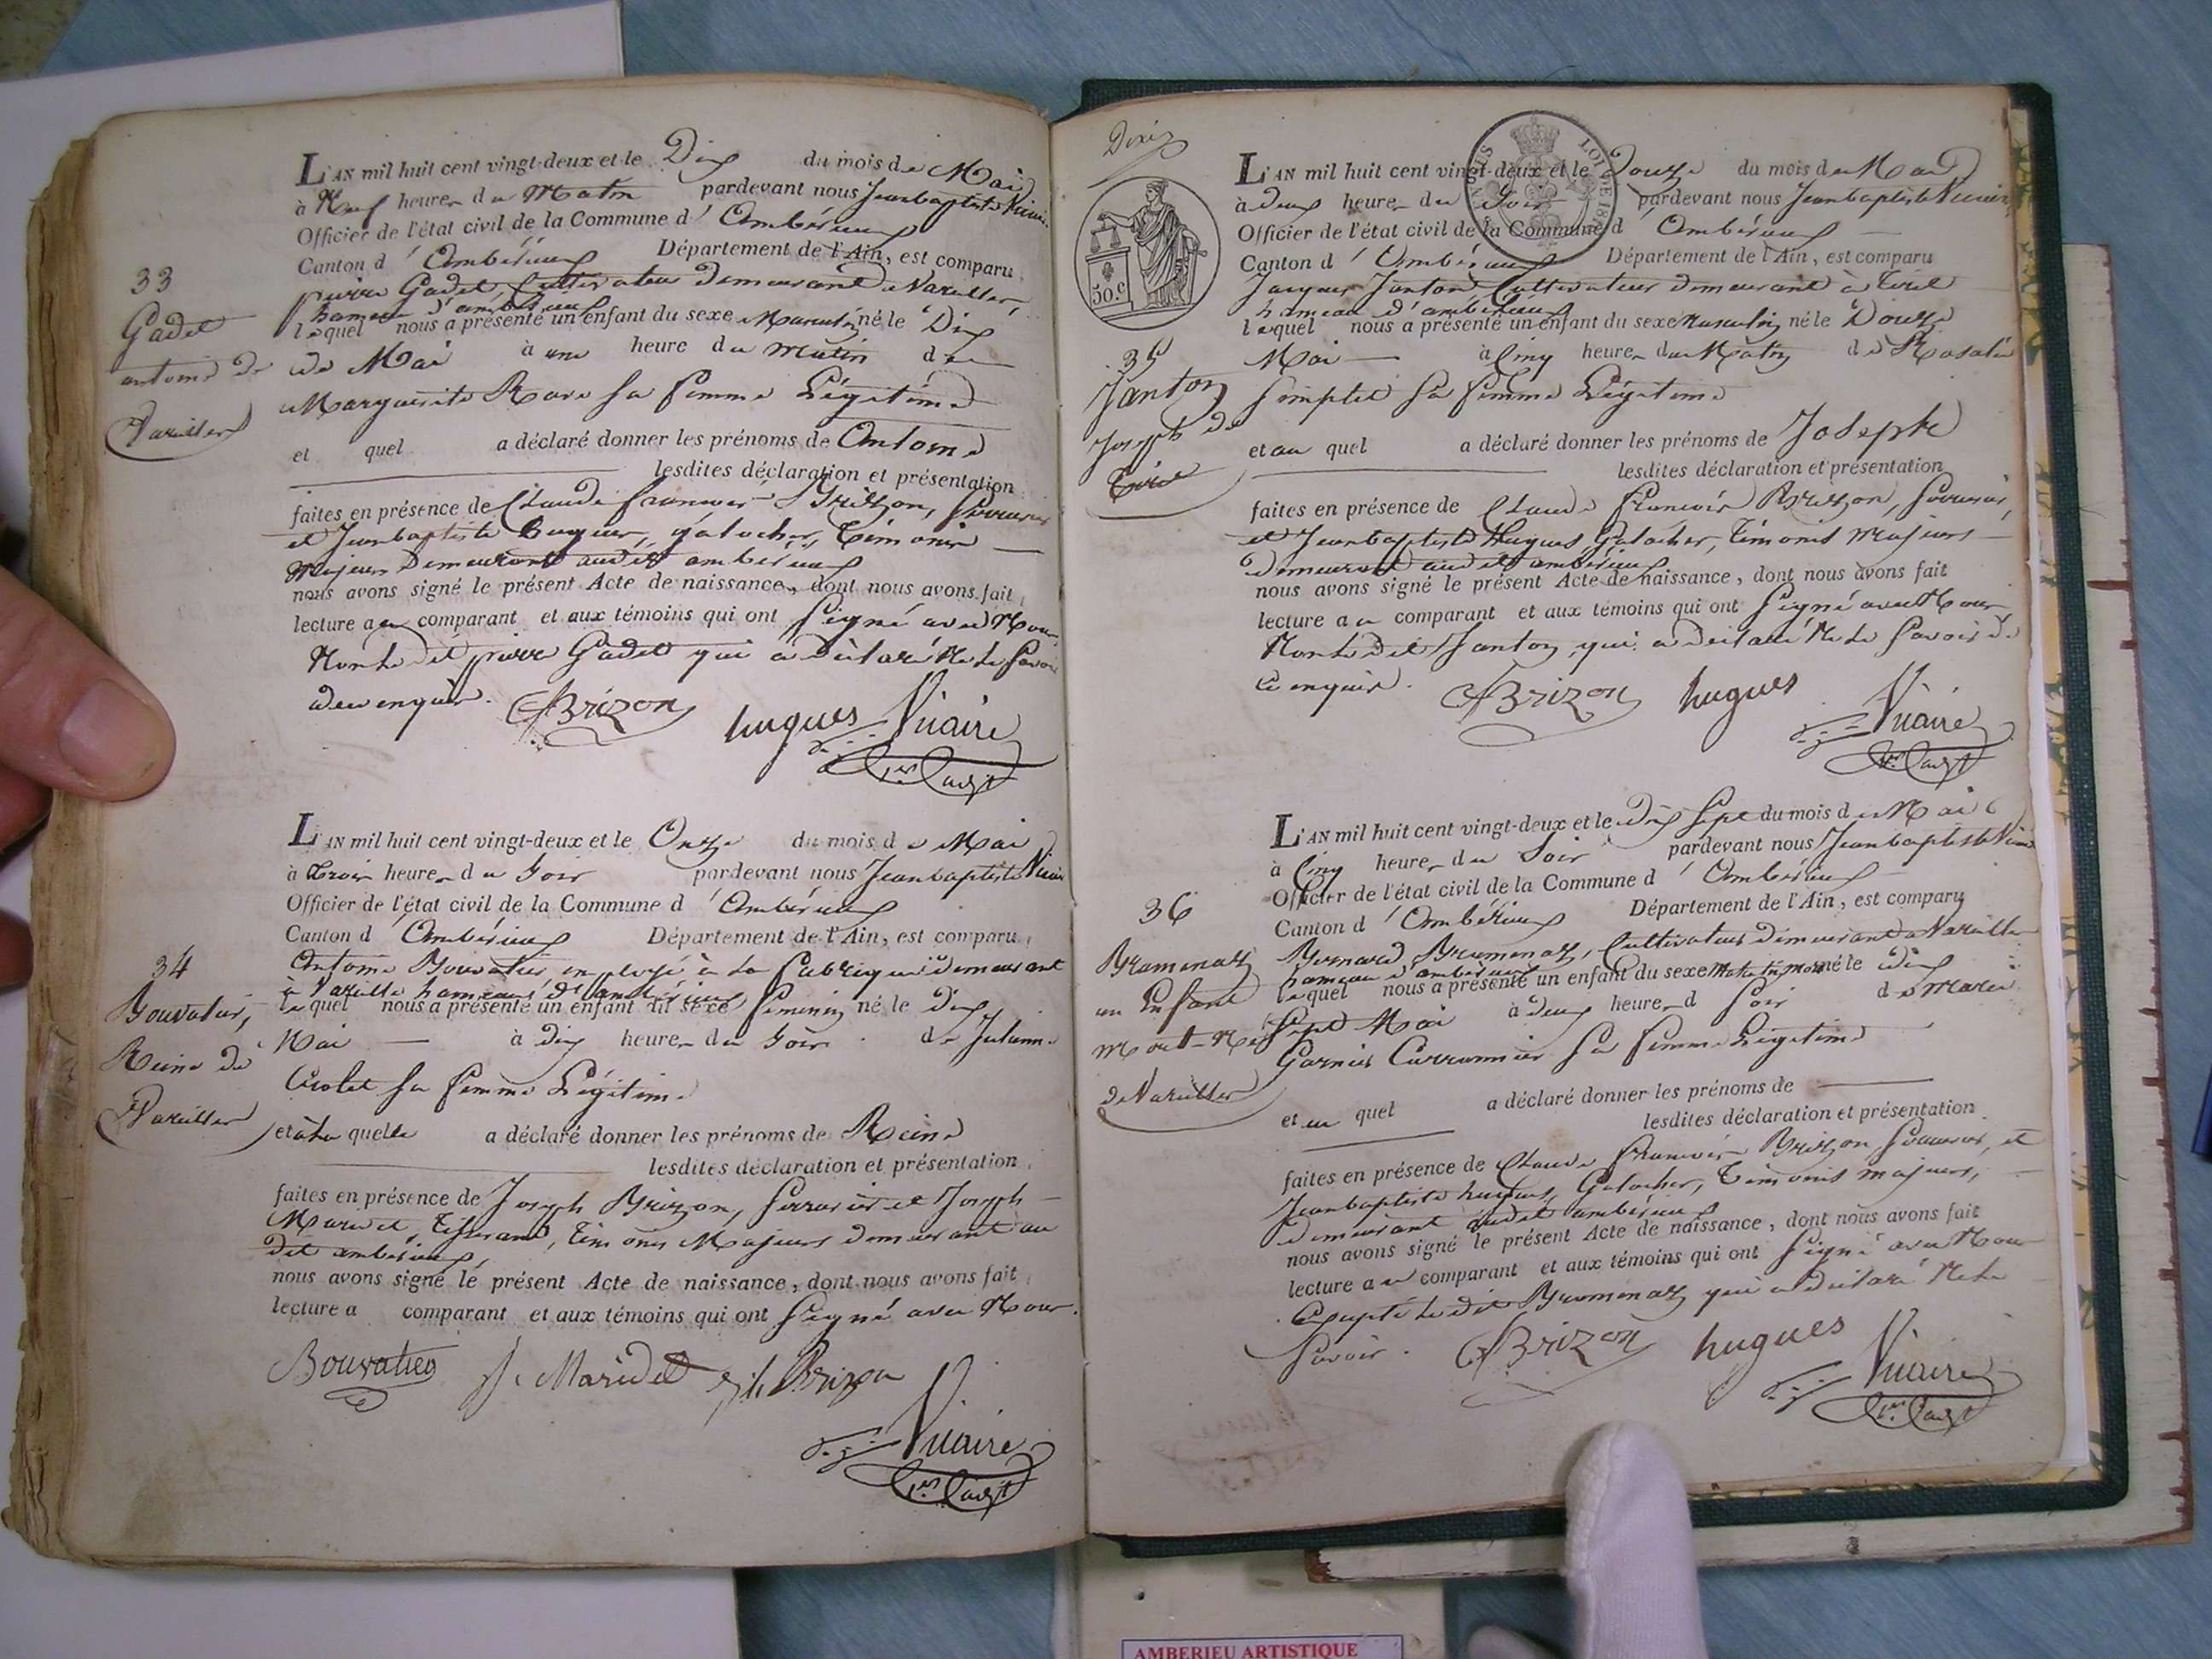 L'AN mil huit cent vingt-deux et le Dix du mois de Mai
à Neuf heures du Matin pardevant nous Jeanbaptiste Vuaire
Officier de l'état civil de la Commune d'Ambérieux
Canton d'Ambérieux Département de l'Ain, est comparu
pierre Gadet Cultivateur demeurant a Vareilles
hameau d'ambérieux
lequel nous a présenté un enfant du sexe Masculin né le Dix
de Mai à une heure du Matin de
Marguerite Rave sa femme Légitime
et quel a déclaré donner les prénoms de Antoine
lesdites déclaration et présentation
faites en présence de Claude françois Brizon, Serrurier
et Jeanbaptiste hugues, galocher, témoins
Majeurs demeurant audit ambérieux
nous avons signé le présent Acte de naissance, dont nous avons fait
lecture au comparant et aux témoins qui ont Signé avec Nous
Non le dit pierre Gadet qui a déclaré Ne le Savoir
de ce enquis.
Brizon hugues Vuaire
33
Gadet
antoine de
Vareilles
L'AN mil huit cent vingt-deux et le Onze du mois de Mai
à trois heures du Soir pardevant nous Jeanbaptiste Vuaire
Officier de l'état civil de la Commune d'Ambérieux
Canton d'Ambérieux Département de l'Ain, est comparu
Antoine Bouvatier, employé à la fabrique demeurant
à Vareilles hameau d'ambérieux
lequel nous a présenté un enfant du sexe féminin né le dix
Mai à dix heures du Soir de Julienne
sa femme Légitime
et à la quelle a déclaré donner les prénoms de Reine
lesdites déclaration et présentation
faites en présence de Joseph Brizon, Serrurier et Joseph
Maridet, tisserand, témoins Majeurs demeurant au
dit ambérieux,
nous avons signé le présent Acte de naissance, dont nous avons fait
lecture a comparant et aux témoins qui ont Signé avec Nous.
Bouvatier J. Maridet Brizon
Vuaire
34
Bouvatier,
Reine de
Vareilles
50.c
LOI DE 18
L'AN mil huit cent vingt-deux et le Douze du mois de Mai
à deux heures du Soir pardevant nous Jeanbaptiste Vuaire
Officier de l'état civil de la Commune d'Ambérieux
Canton d'Ambérieux Département de l'Ain, est comparu
Jacques Janton Cultivateur demeurant à Tiret
hameau d'ambérieux
lequel nous a présenté un enfant du sexe Masculin né le Douze
Mai à Cinq heures du Matin de Rosalie
Simplet sa femme Légitime
et au quel a déclaré donner les prénoms de Joseph
lesdites déclaration et présentation
faites en présence de Claude François Brizon, Serrurier,
et Jeanbaptiste Hugues Galocher, témoins Majeurs
demeurant audit ambérieux
nous avons signé le présent Acte de naissance, dont nous avons fait
lecture au comparant et aux témoins qui ont Signé avec Nous
Non le dit Janton qui a déclaré Ne le Savoir de
ce enquis.
Brizon hugues
Vuaire
35
Janton
Joseph de
Tiret
L'AN mil huit cent vingt-deux et le dix Sept du mois de Mai
à Cinq heures du Soir pardevant nous Jeanbaptiste Vuaire
Officier de l'état civil de la Commune d'Ambérieux
Canton d'Ambérieux Département de l'Ain, est comparu
Bernard Bramenaz, Cultivateur demeurant a Vareilles
hameau d'ambérieux
lequel nous a présenté un enfant du sexe né le dix
Sept Mai à deux heures d Soir de Marie
Garnier Carronnier sa femme Légitime
et au quel a déclaré donner les prénoms de
lesdites déclaration et présentation
faites en présence de Claude François Brizon, Serrurier, et
Jeanbaptiste hugues, Galocher, témoins majeurs,
demeurant audit ambérieux
nous avons signé le présent Acte de naissance, dont nous avons fait
lecture au comparant et aux témoins qui ont Signé avec Nous
Excepté le dit Bramenaz qui a déclaré Ne le
Savoir.
Brizon hugues
Vuaire
36
Bramenaz
un Enfant
mort-né
de Vareilles
AMBERIEU ARTISTIQUE